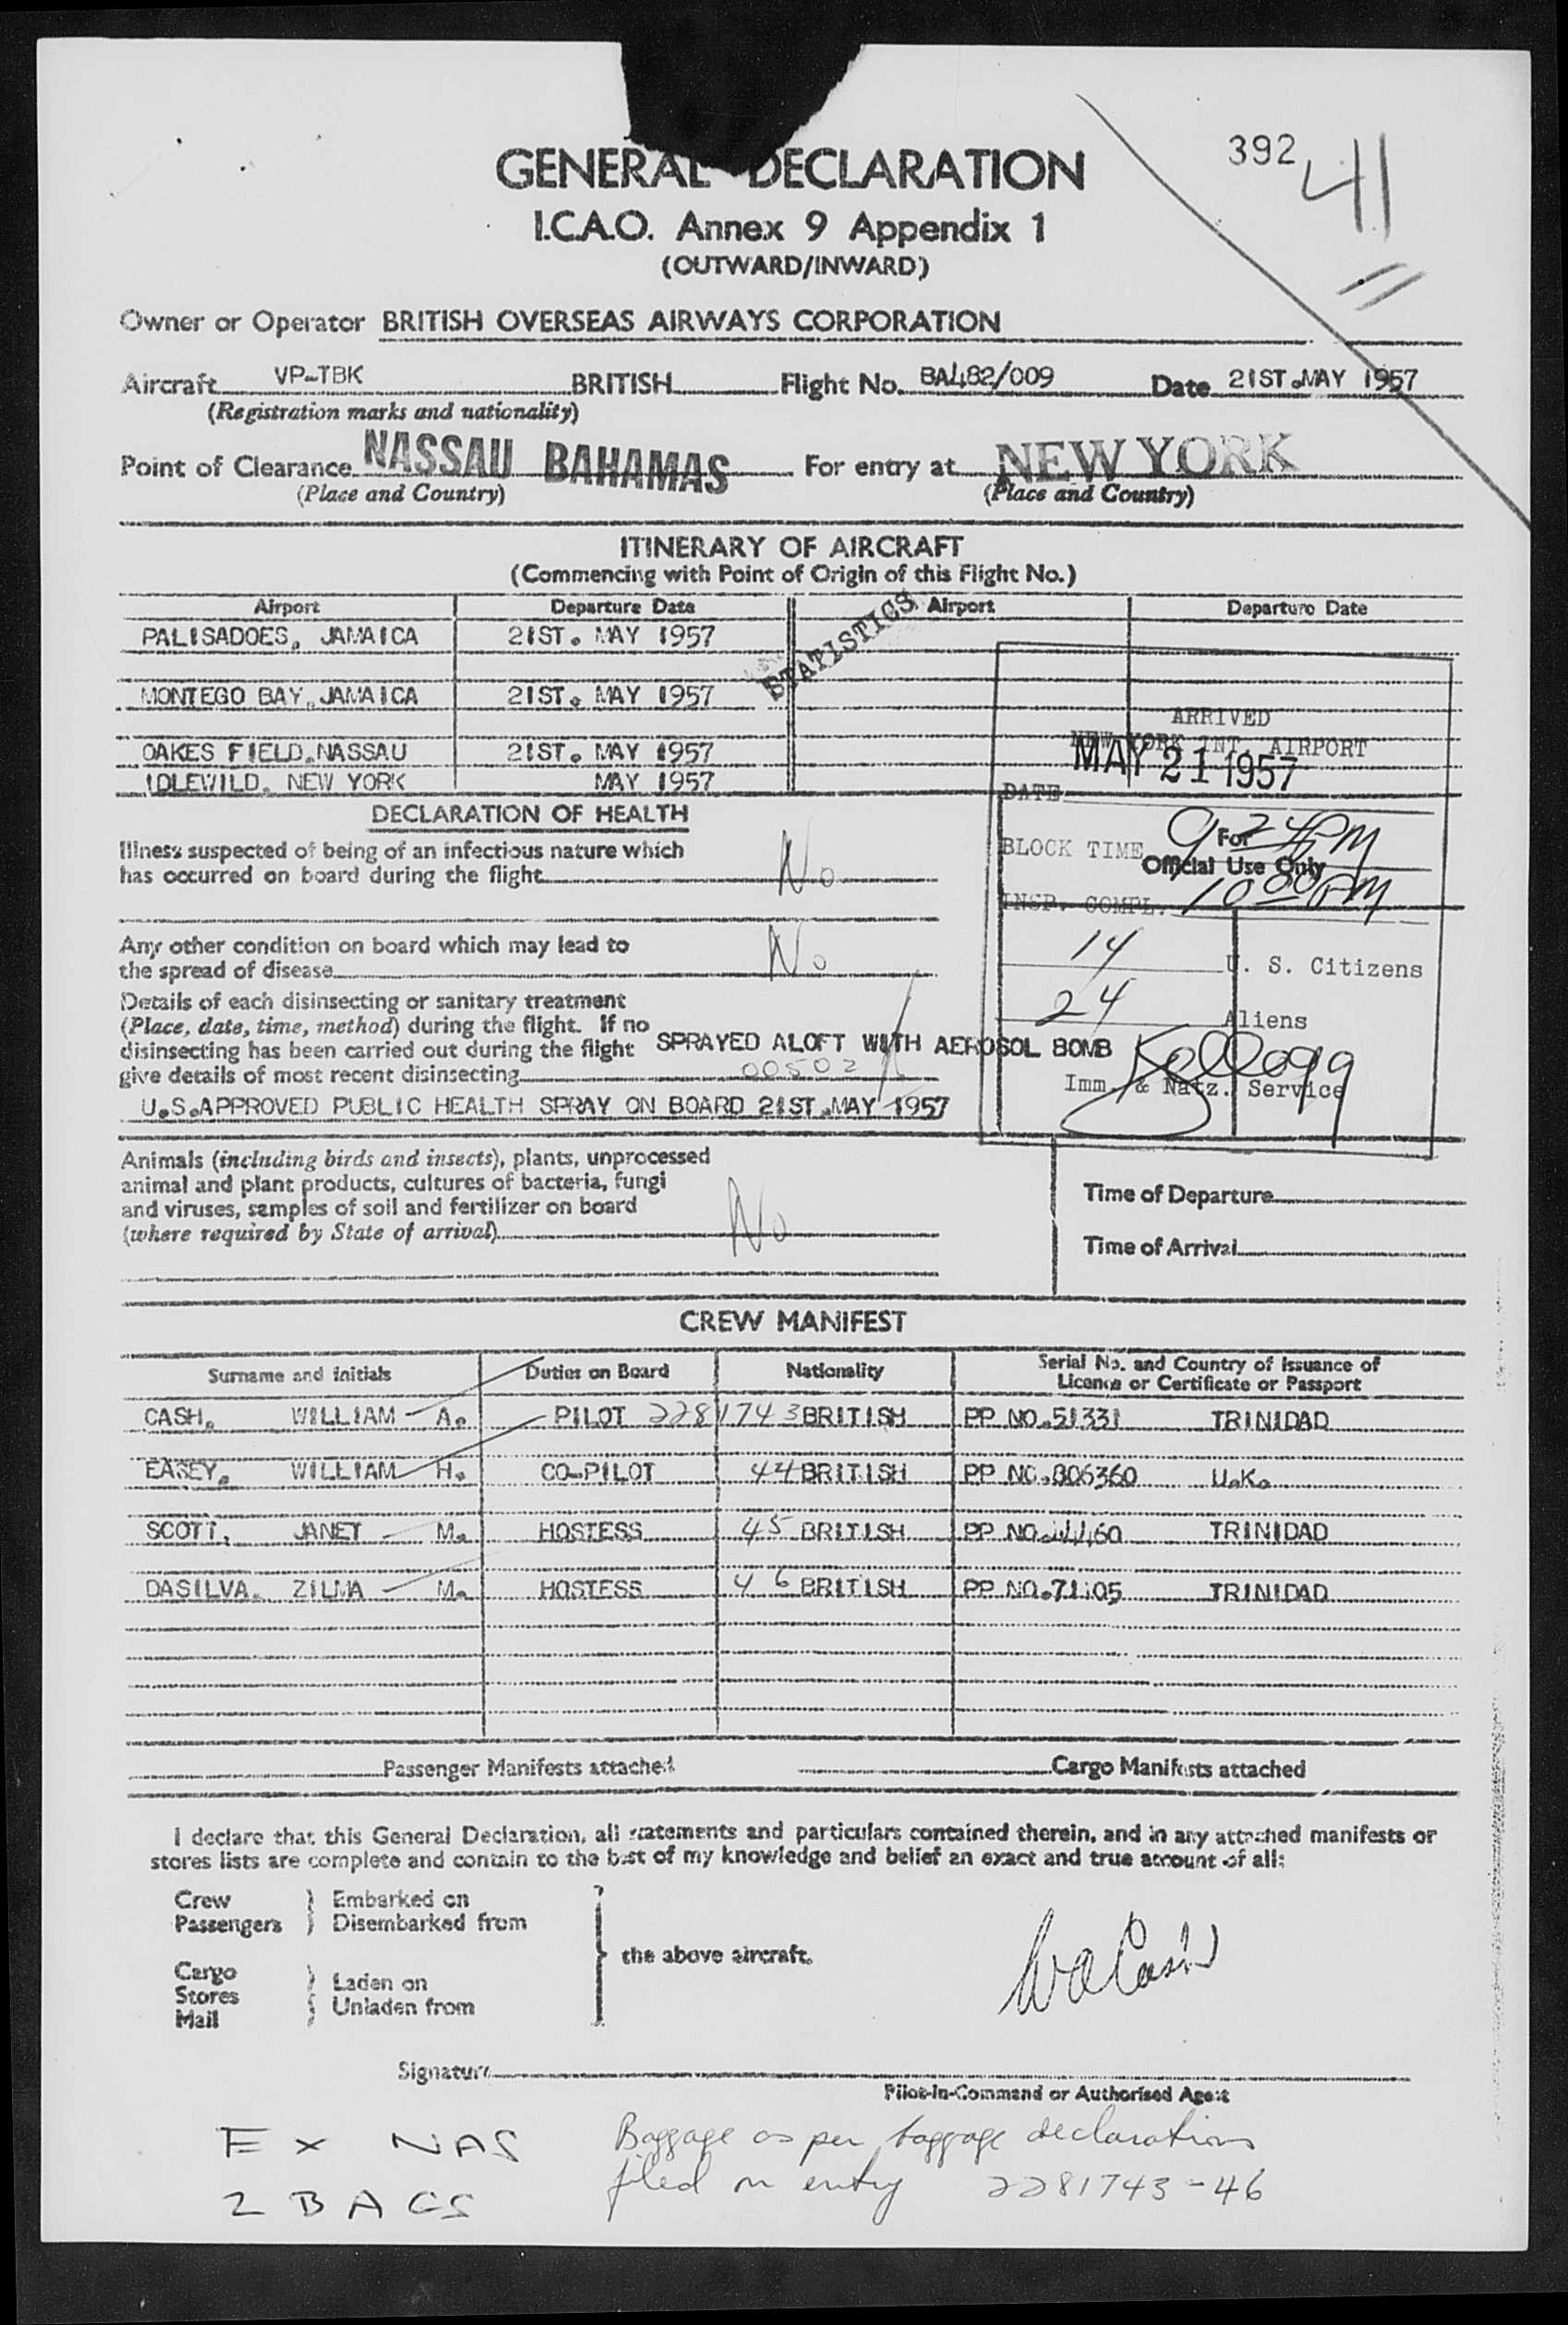 GENERAL DECLARATION
392
41
I.C.A.O. Annex 9 Appendix 1
(OUTWARD/INWARD)
Owner or Operator BRITISH OVERSEAS AIRWAYS CORPORATION
Aircraft VP-TBK BRITISH Flight No. BA482/009 Date 21ST.MAY 1957
(Registration marks and nationality)
Point of Clearance NASSAU BAHAMAS For entry at NEW YORK
(Place and Country) (Place and Country)
ITINERARY OF AIRCRAFT
(Commencing with Point of Origin of this Flight No.)
Airport Departure Date Airport Departure Date
STATISTICS
PALISADOES, JAMAICA 21ST. MAY 1957
MONTEGO BAY, JAMAICA 21ST. MAY 1957
OAKES FIELD, NASSAU 21ST. MAY 1957
IDLEWILD, NEW YORK MAY 1957
ARRIVED
NEW YORK INT. AIRPORT
MAY 21 1957
DATE
BLOCK TIME 9 24 PM
For
Official Use Only
INSP. COMPL. 10 00 PM
14 U. S. Citizens
24 Aliens
Kellogg
Imm. & Natz. Service
DECLARATION OF HEALTH
Illness suspected of being of an infectious nature which
has occurred on board during the flight No
Any other condition on board which may lead to
the spread of disease No
Details of each disinsecting or sanitary treatment
(Place, date, time, method) during the flight. If no
disinsecting has been carried out during the flight SPRAYED ALOFT WITH AEROSOL BOMB
give details of most recent disinsecting 00502
U.S.APPROVED PUBLIC HEALTH SPRAY ON BOARD 21ST.MAY 1957
Animals (including birds and insects), plants, unprocessed
animal and plant products, cultures of bacteria, fungi
and viruses, samples of soil and fertilizer on board
(where required by State of arrival) No
Time of Departure
Time of Arrival
CREW MANIFEST
Surname and initials Duties on Board Nationality Serial No. and Country of Issuance of
Licence or Certificate or Passport
CASH, WILLIAM A. PILOT 2281743 BRITISH PP NO.51331 TRINIDAD
EASEY, WILLIAM H. CO-PILOT 44 BRITISH PP NO.806360 U.K.
SCOTT, JANET M. HOSTESS 45 BRITISH PP NO. TRINIDAD
DASILVA, ZILMA M. HOSTESS 46 BRITISH PP NO. TRINIDAD
Passenger Manifests attached Cargo Manifests attached
I declare that this General Declaration, all statements and particulars contained therein, and in any attached manifests or
stores lists are complete and contain to the best of my knowledge and belief an exact and true account of all:
Crew } Embarked on
Passengers } Disembarked from
the above aircraft.
Cargo
Stores } Laden on
Mail } Unladen from
WA Cash
Signature
Pilot-in-Command or Authorised Agent
EX NAS
2 BAGS
Baggage as per baggage declarations
filed on entry 2281743-46